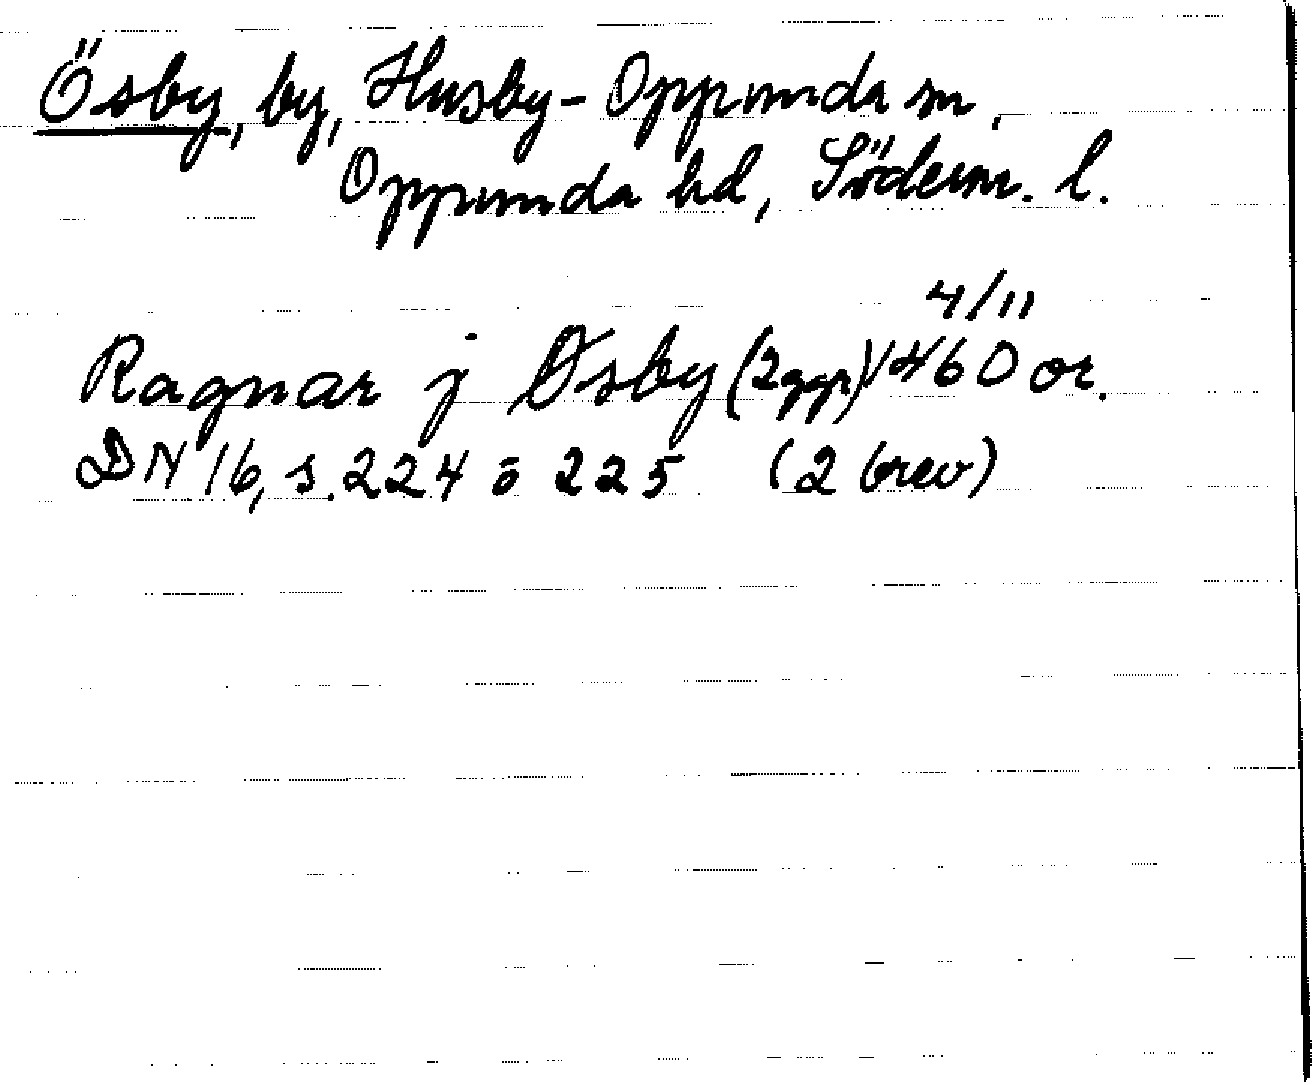 Ösby, by, Husby-Oppunda sn,
Oppunda hd, Söderm. l.
4/11
Ragnar j Øsby (2 ggr) 1460 or.
DN 16, s. 224 o 225 (2 brev)